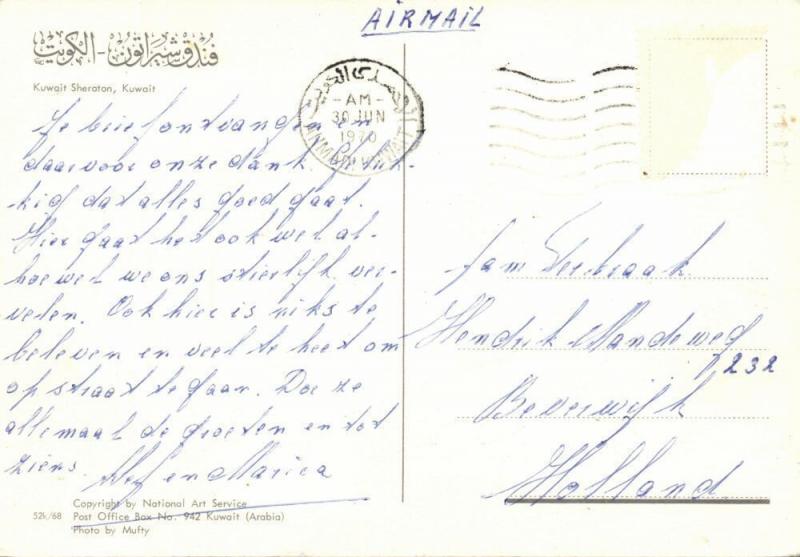 AIRMAIL
فندق شيراتون - الكويت
Kuwait Sheraton, Kuwait
-AM-
30 JUN
1970
Je brief ontvangen en
daarvoor onze dank. Geluk-
kig dat alles goed gaat.
Hier gaat het ook wel al-
hoewel we ons sterlijk ver-
velen. Ook hier is niks te
beleven en veel te heet om
op straat te gaan. Doe ze
allemaal de groeten en tot
ziens. en Marica
fam
Hendrik Mandeweg
232
Beverwijk
Holland
Copyright by National Art Service
52k/68 Post Office Box No. 942 Kuwait (Arabia)
Photo by Mufty